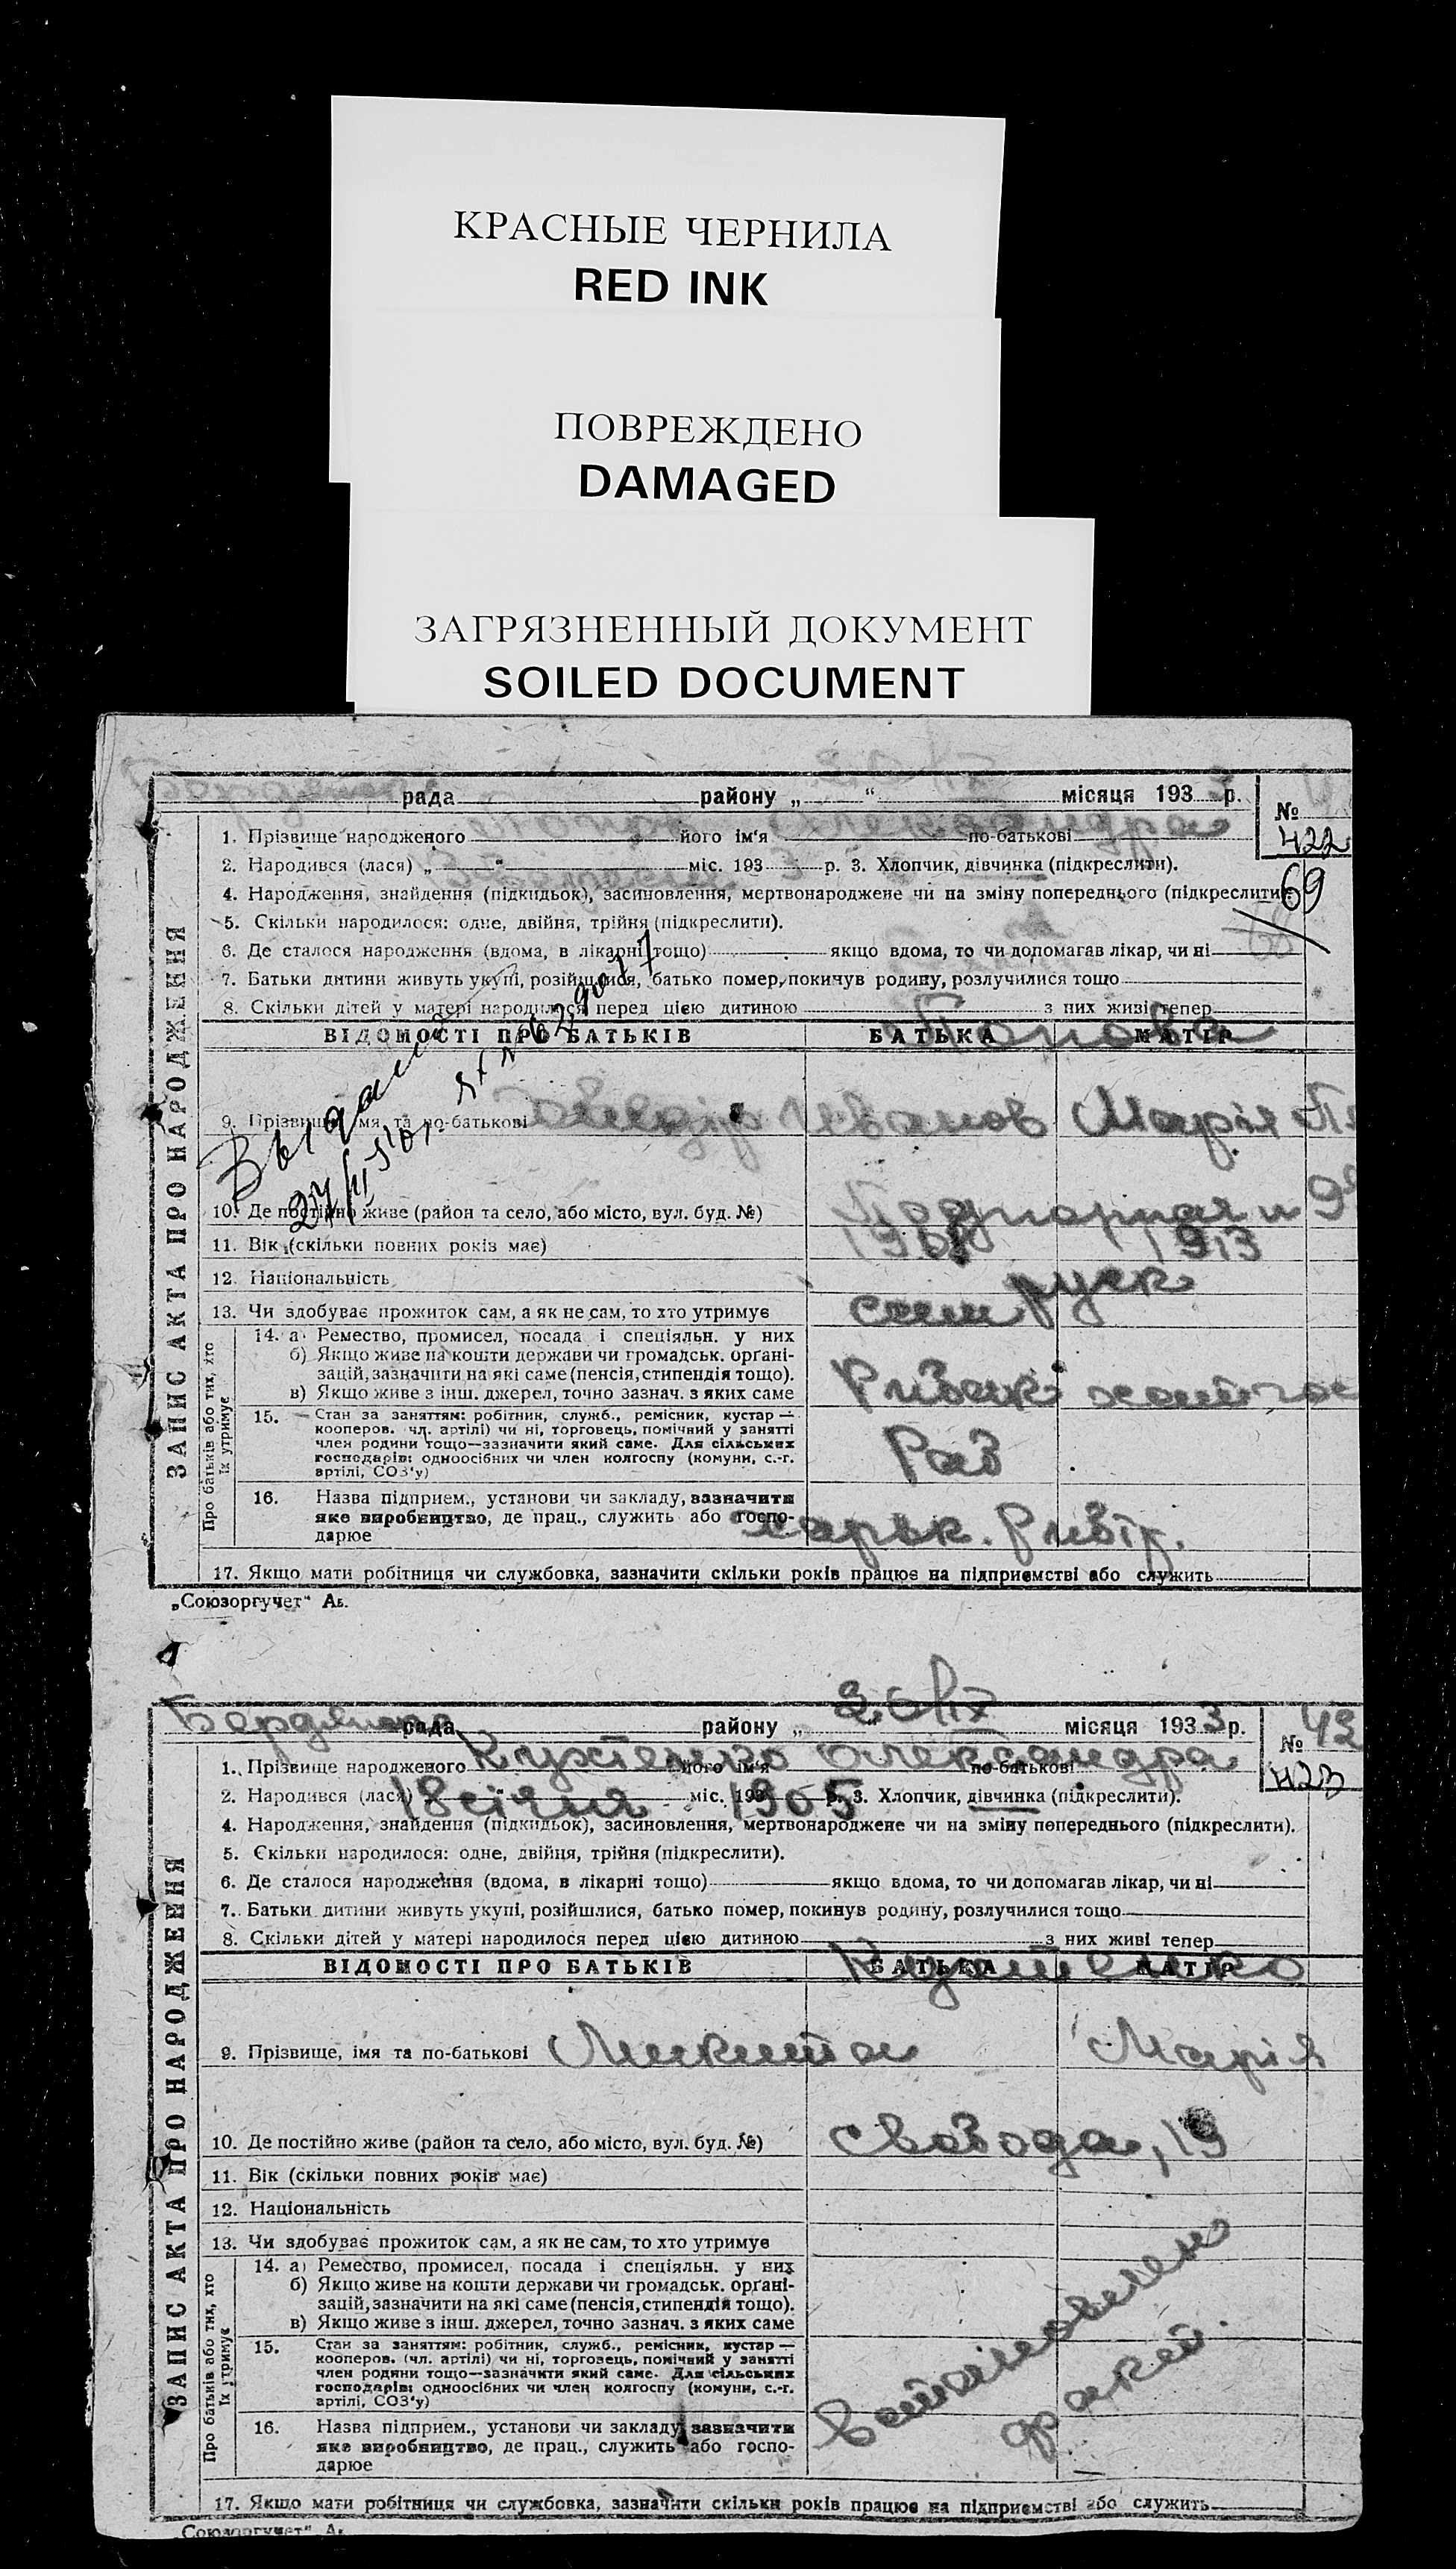 КРАСНЫЕ ЧЕРНИЛА
RED INK
ПОВРЕЖДЕНО
DAMAGED
ЗАГРЯЗНЕННЫЙ ДОКУМЕНТ
SOILED DOCUMENT
рада району „ “ місяця 1933 р.
№
422
1. Прізвище народженого його ім'я по-батькові
2. Народився (лася) „ “ міс. 193 р. 3. Хлопчик, дівчинка (підкреслити).
4. Народження, знайдення (підкидьок), засиновлення, мертвонароджене чи на зміну попереднього (підкреслити).
69
5. Скільки народилося: одне, двійня, трійня (підкреслити).
6. Де сталося народження (вдома, в лікарні тощо) якщо вдома, то чи допомагав лікар, чи ні
7. Батьки дитини живуть укупі, розійшлися, батько помер, покинув родину, розлучилися тощо
8. Скільки дітей у матері народилося перед цією дитиною з них живі тепер
ЗАПИС АКТА ПРО НАРОДЖЕННЯ
ВІДОМОСТІ ПРО БАТЬКІВ БАТЬКА МАТІР
Попова
9. Прізвище, імя та по-батькові Иванов Марія
10. Де постійно живе (район та село, або місто, вул. буд. №)
11. Вік (скільки повних років має) 1913
12. Національність руск
13. Чи здобуває прожиток сам, а як не сам, то хто утримує сам
Про батьків або тих, хто їх утримує
14. а) Ремество, промисел, посада і спеціяльн. у них
б) Якщо живе на кошти держави чи громадськ. органі-
зацій, зазначити на які саме (пенсія, стипендія тощо).
в) Якщо живе з інш. джерел, точно зазнач. з яких саме
15. Стан за заняттям: робітник, служб., ремісник, кустар —
кооперов. (чл. артілі) чи ні, торговець, помічний у занятті
член родини тощо—зазначити який саме. Для сільських
господарів: одноосібних чи член колгоспу (комуни, с.-г.
артілі, СОЗ'у)
Раб
16. Назва підприєм., установи чи закладу, зазначити
яке виробництво, де прац., служить або госпо-
дарює
17. Якщо мати робітниця чи службовка, зазначити скільки років працює на підприємстві або служить
„Союзоргучет“ Аь.
20/IX
рада району „ “ місяця 1933 р.
№ 43
423
1. Прізвище народженого Кухтенко його ім'я Олександра по-батькові
2. Народився (лася) 18 січня міс. 1905 р. 3. Хлопчик, дівчинка (підкреслити).
4. Народження, знайдення (підкидьок), засиновлення, мертвонароджене чи на зміну попереднього (підкреслити).
5. Скільки народилося: одне, двійня, трійня (підкреслити).
6. Де сталося народження (вдома, в лікарні тощо) якщо вдома, то чи допомагав лікар, чи ні
7. Батьки дитини живуть укупі, розійшлися, батько помер, покинув родину, розлучилися тощо
8. Скільки дітей у матері народилося перед цією дитиною з них живі тепер
ЗАПИС АКТА ПРО НАРОДЖЕННЯ
ВІДОМОСТІ ПРО БАТЬКІВ БАТЬКА МАТІР
Кухтенко
9. Прізвище, імя та по-батькові Микита Марія
10. Де постійно живе (район та село, або місто, вул. буд. №) Свобода, 19
11. Вік (скільки повних років має)
12. Національність
13. Чи здобуває прожиток сам, а як не сам, то хто утримує
Про батьків або тих, хто їх утримує
14. а) Ремество, промисел, посада і спеціяльн. у них
б) Якщо живе на кошти держави чи громадськ. органі-
зацій, зазначити на які саме (пенсія, стипендія тощо).
в) Якщо живе з інш. джерел, точно зазнач. з яких саме
15. Стан за заняттям: робітник, служб., ремісник, кустар —
кооперов. (чл. артілі) чи ні, торговець, помічний у занятті
член родини тощо—зазначити який саме. Для сільських
господарів: одноосібних чи член колгоспу (комуни, с.-г.
артілі, СОЗ'у)
16. Назва підприєм., установи чи закладу, зазначити
яке виробництво, де прац., служить або госпо-
дарює
17. Якщо мати робітниця чи службовка, зазначити скільки років працює на підприємстві або служить
„Союзоргучет“ Аь.